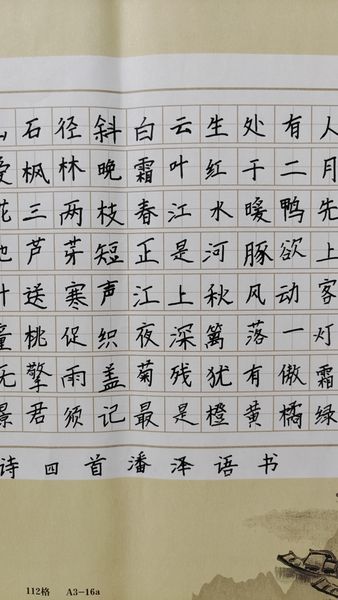 石径斜白云生处有人
枫林晚霜叶红于二月
花三两枝春江水暖鸭先
芦芽短正是河豚欲上
叶送寒声江上秋风动客
童桃促织夜深篱落一灯
无擎雨盖菊残犹有傲霜
景君须记最是橙黄橘绿
诗四首潘泽语书
112格 A3-16a